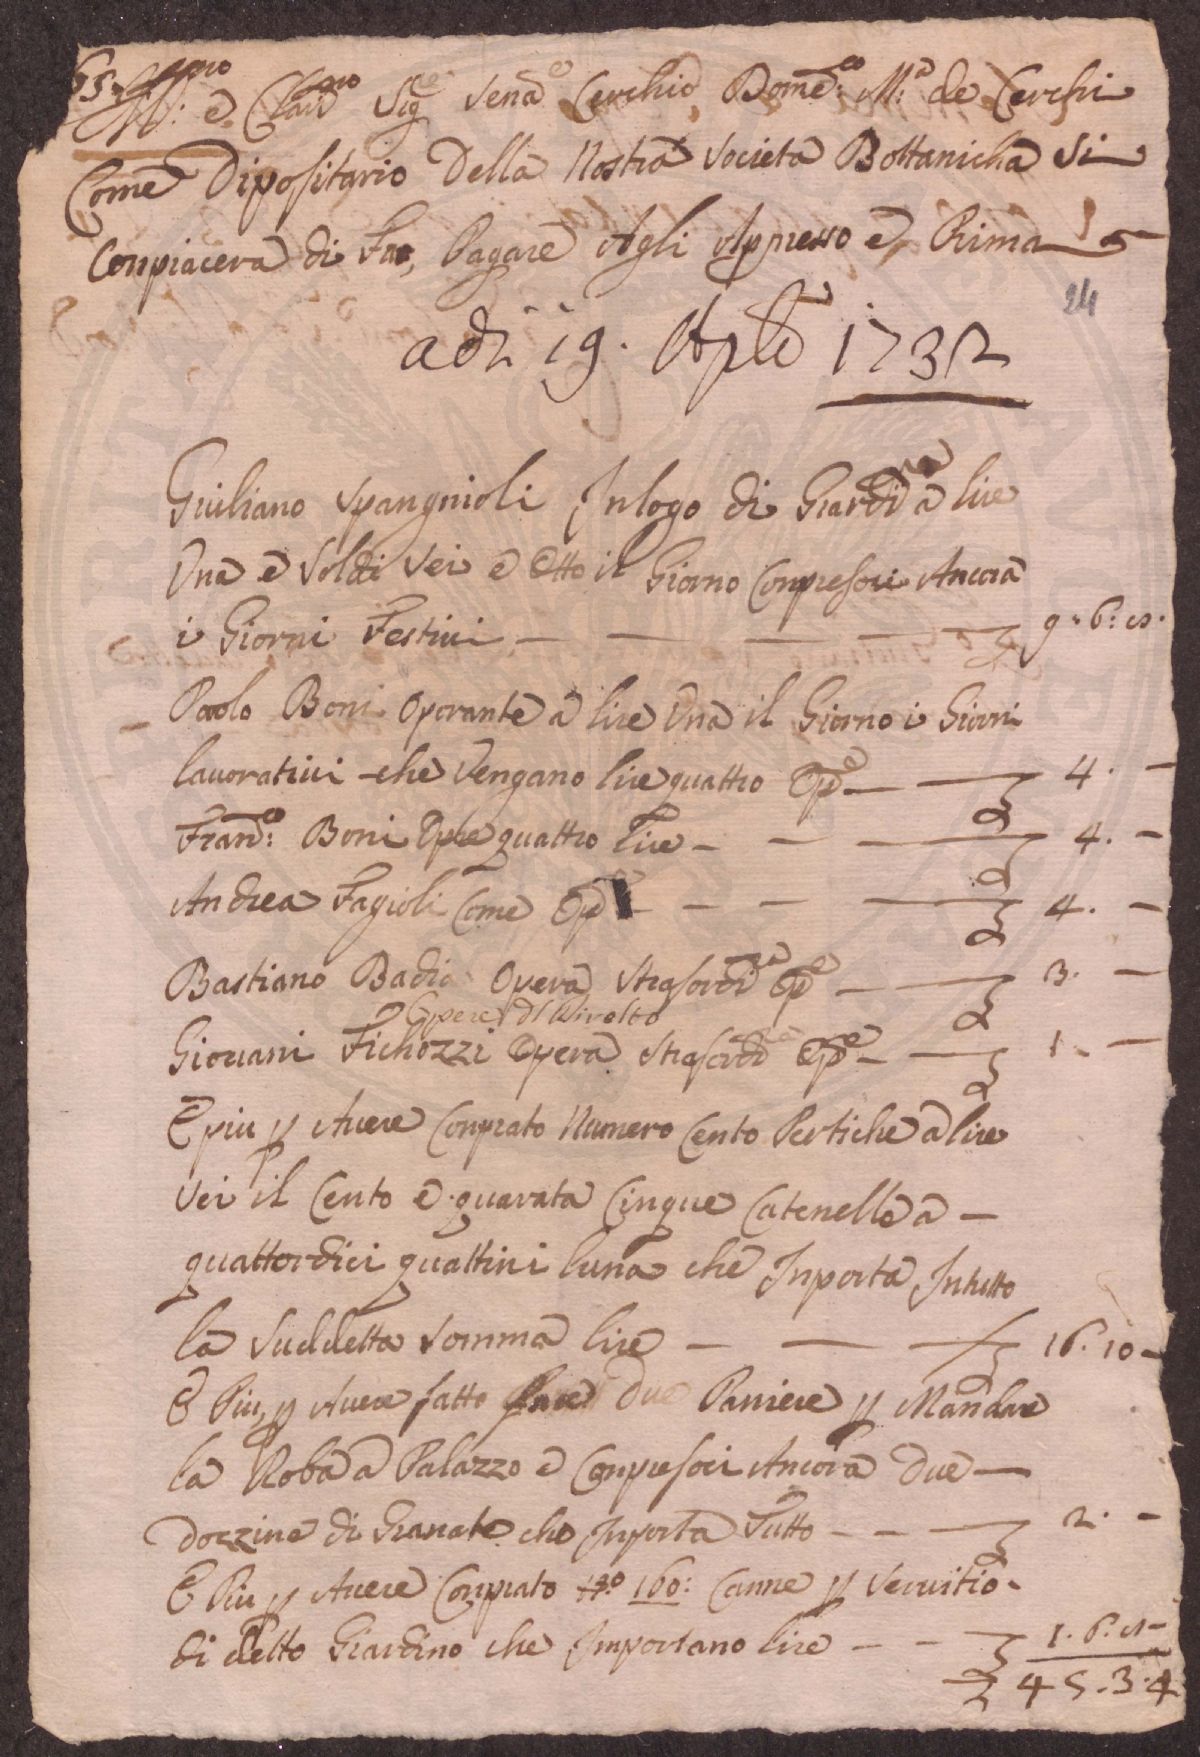 Ill:mo e Clar:mo Sig:e Sena:e Cerchio Dome:co M:a de Cerchi
Come Dipositario Della Nostra Societa Bottanicha Si
Conpiacera di Far, Pagare Agli Appresso e, Prima
24
adi 19. Aple 1732
Giuliano Spangnioli In logo di Giardi:ra a lire
Una e Soldi Sei e Otto il Giorno Conpresoci Ancora
i Giorni Festivi — 9. 6. 8.
Paolo Boni Operante a lire Una il Giorno i Giorni
lavorativi che Vengano lire quattro Ope — 4. —
Fran:co Boni Opre quattro lire — 4. —
Andrea Fagioli Come Ope — 4. —
Bastiano Badii Opera Strasordi:ra Ope — 3. —
Opere di
Giovani Fichozzi Opera Strasordi:ra Ope — 1. —
E piu p Avere Conprato Numero Cento Pertiche a lire
Sei il Cento e quarata Cinque Catenelle a —
quattordici quattrini luna che Inporta Intutto
la Suddetta Somma lire — 16. 10 —
E Piu p Avere fatto fare due Paniere p Mandare
la Roba a Palazzo e Conpresoci Ancora due —
dozzine di Granate che Inporta Tutto — 2. —
E Piu p Avere Conprato no. 160: Canne p Servitio
di detto Giardino che Importano lire — 1. 6. 8 —
45. 3. 4